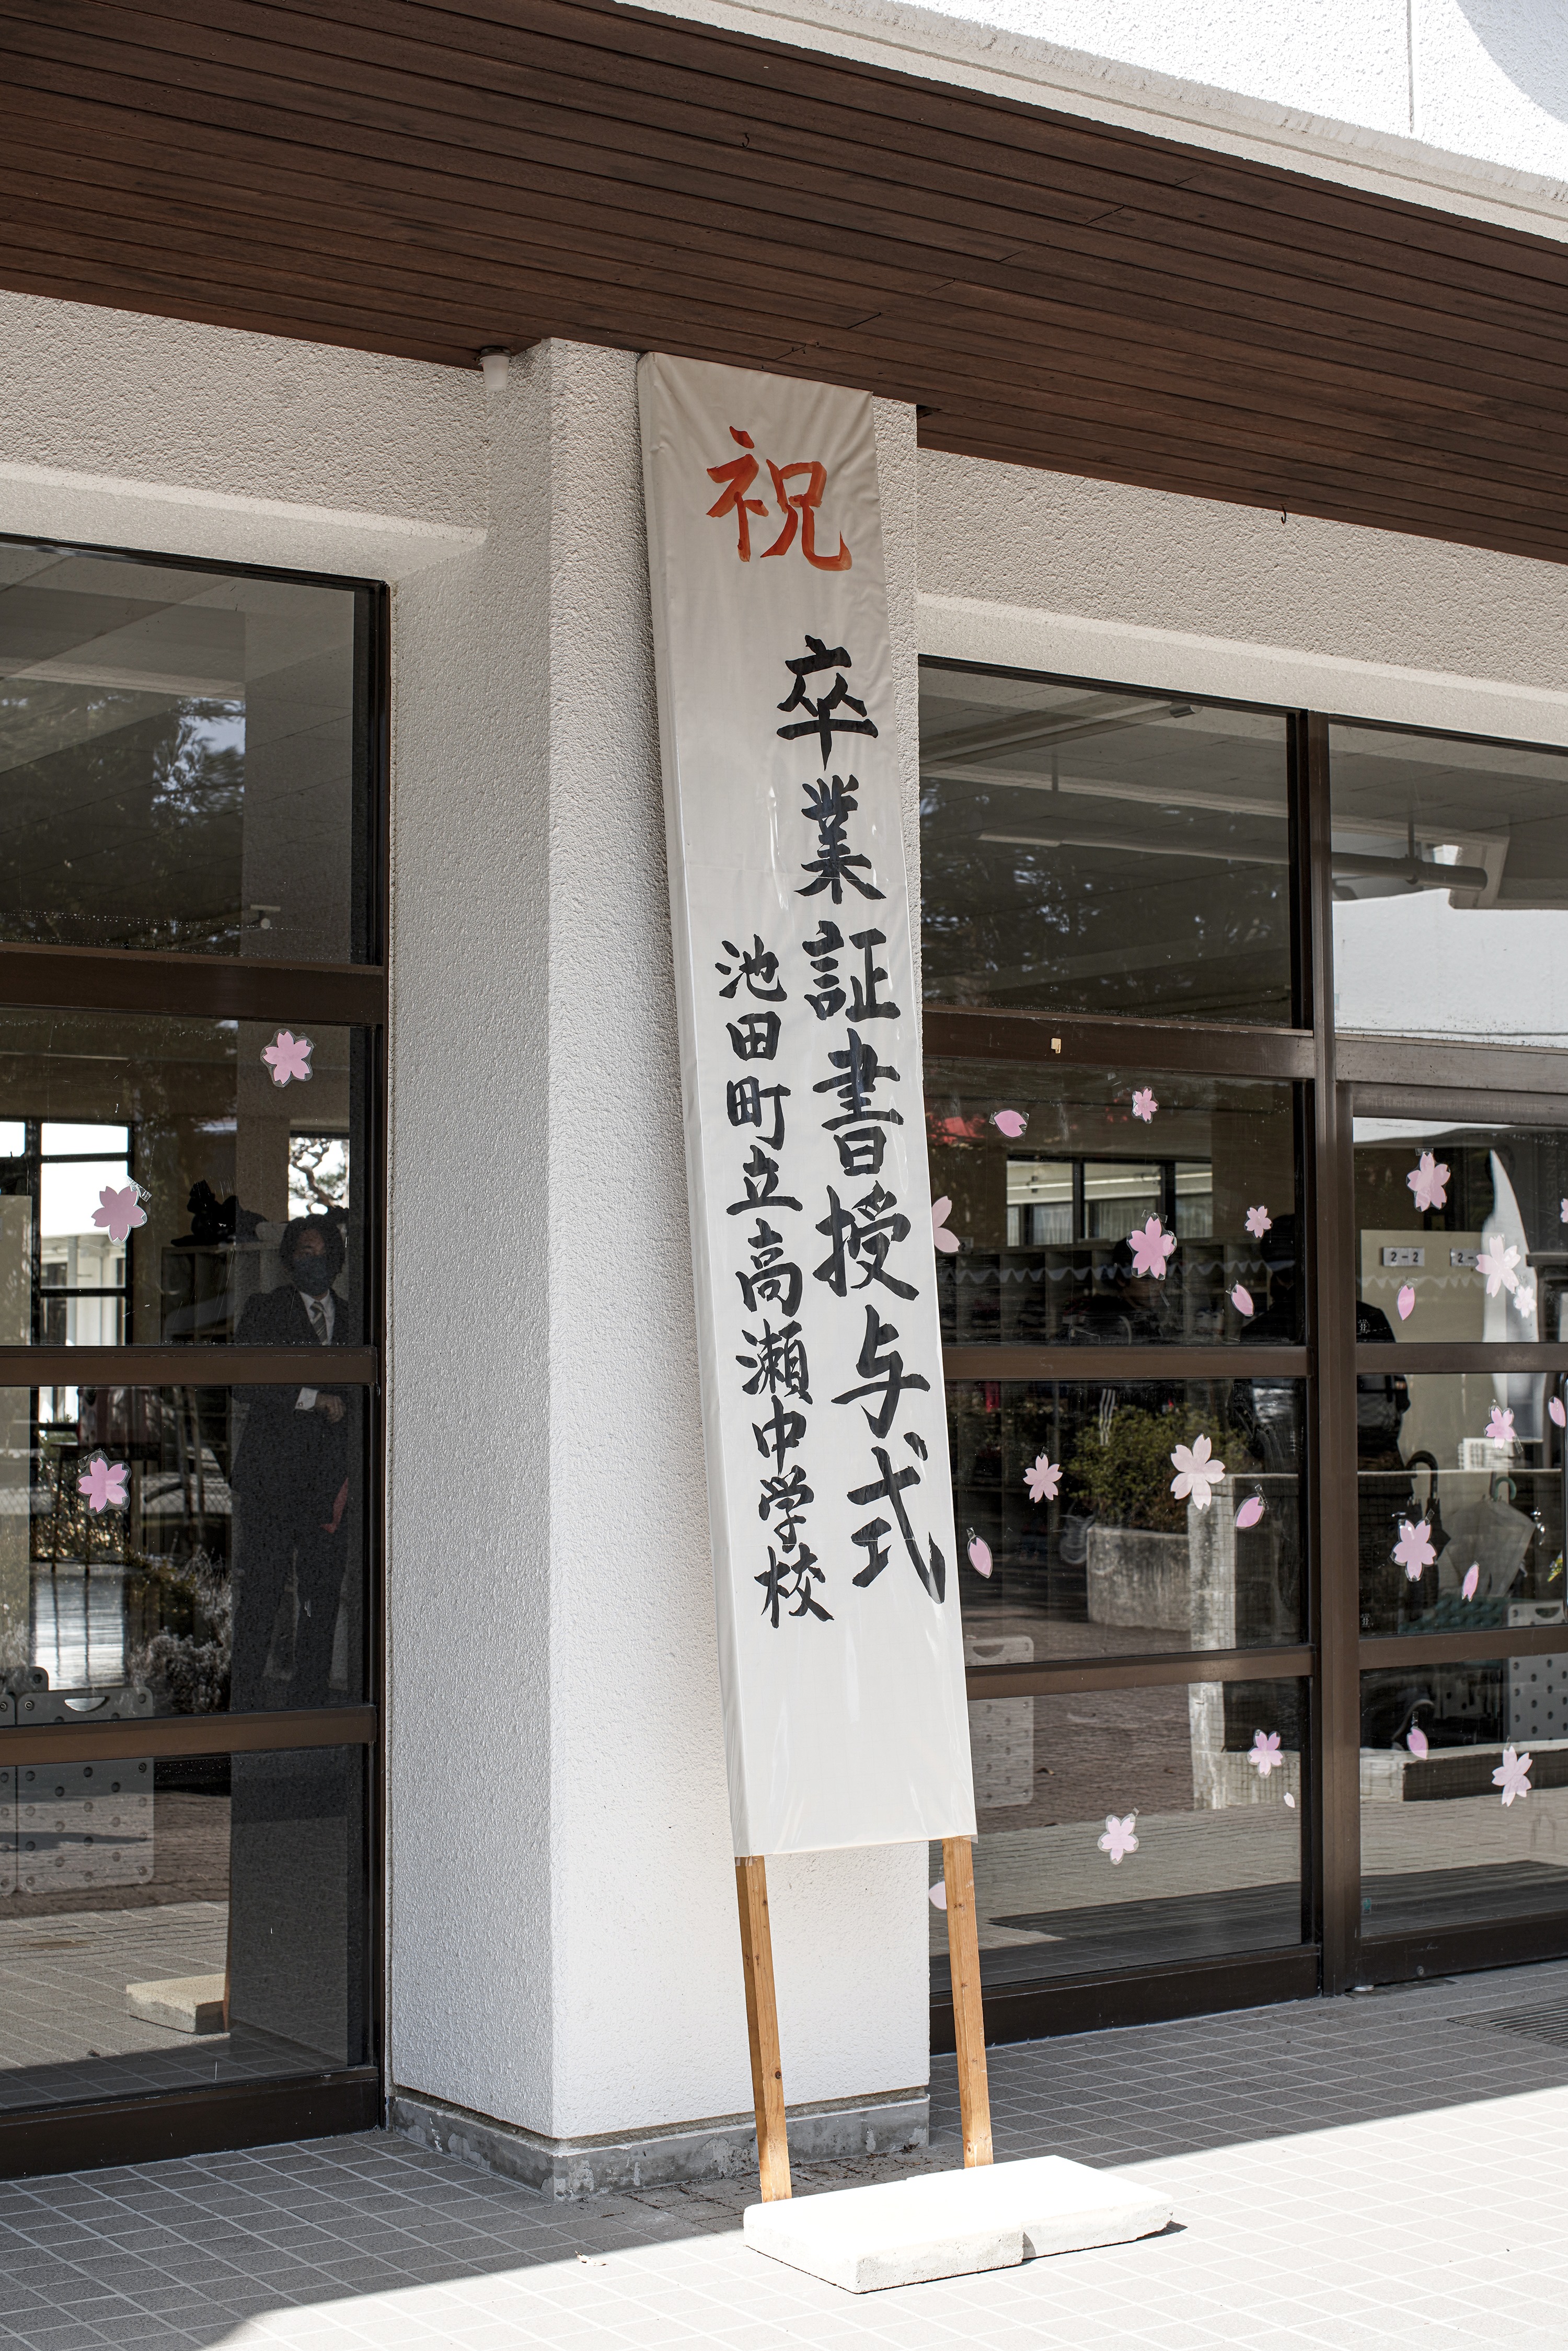 祝
卒業証書授与式
池田町立高瀬中学校
2-2
2-